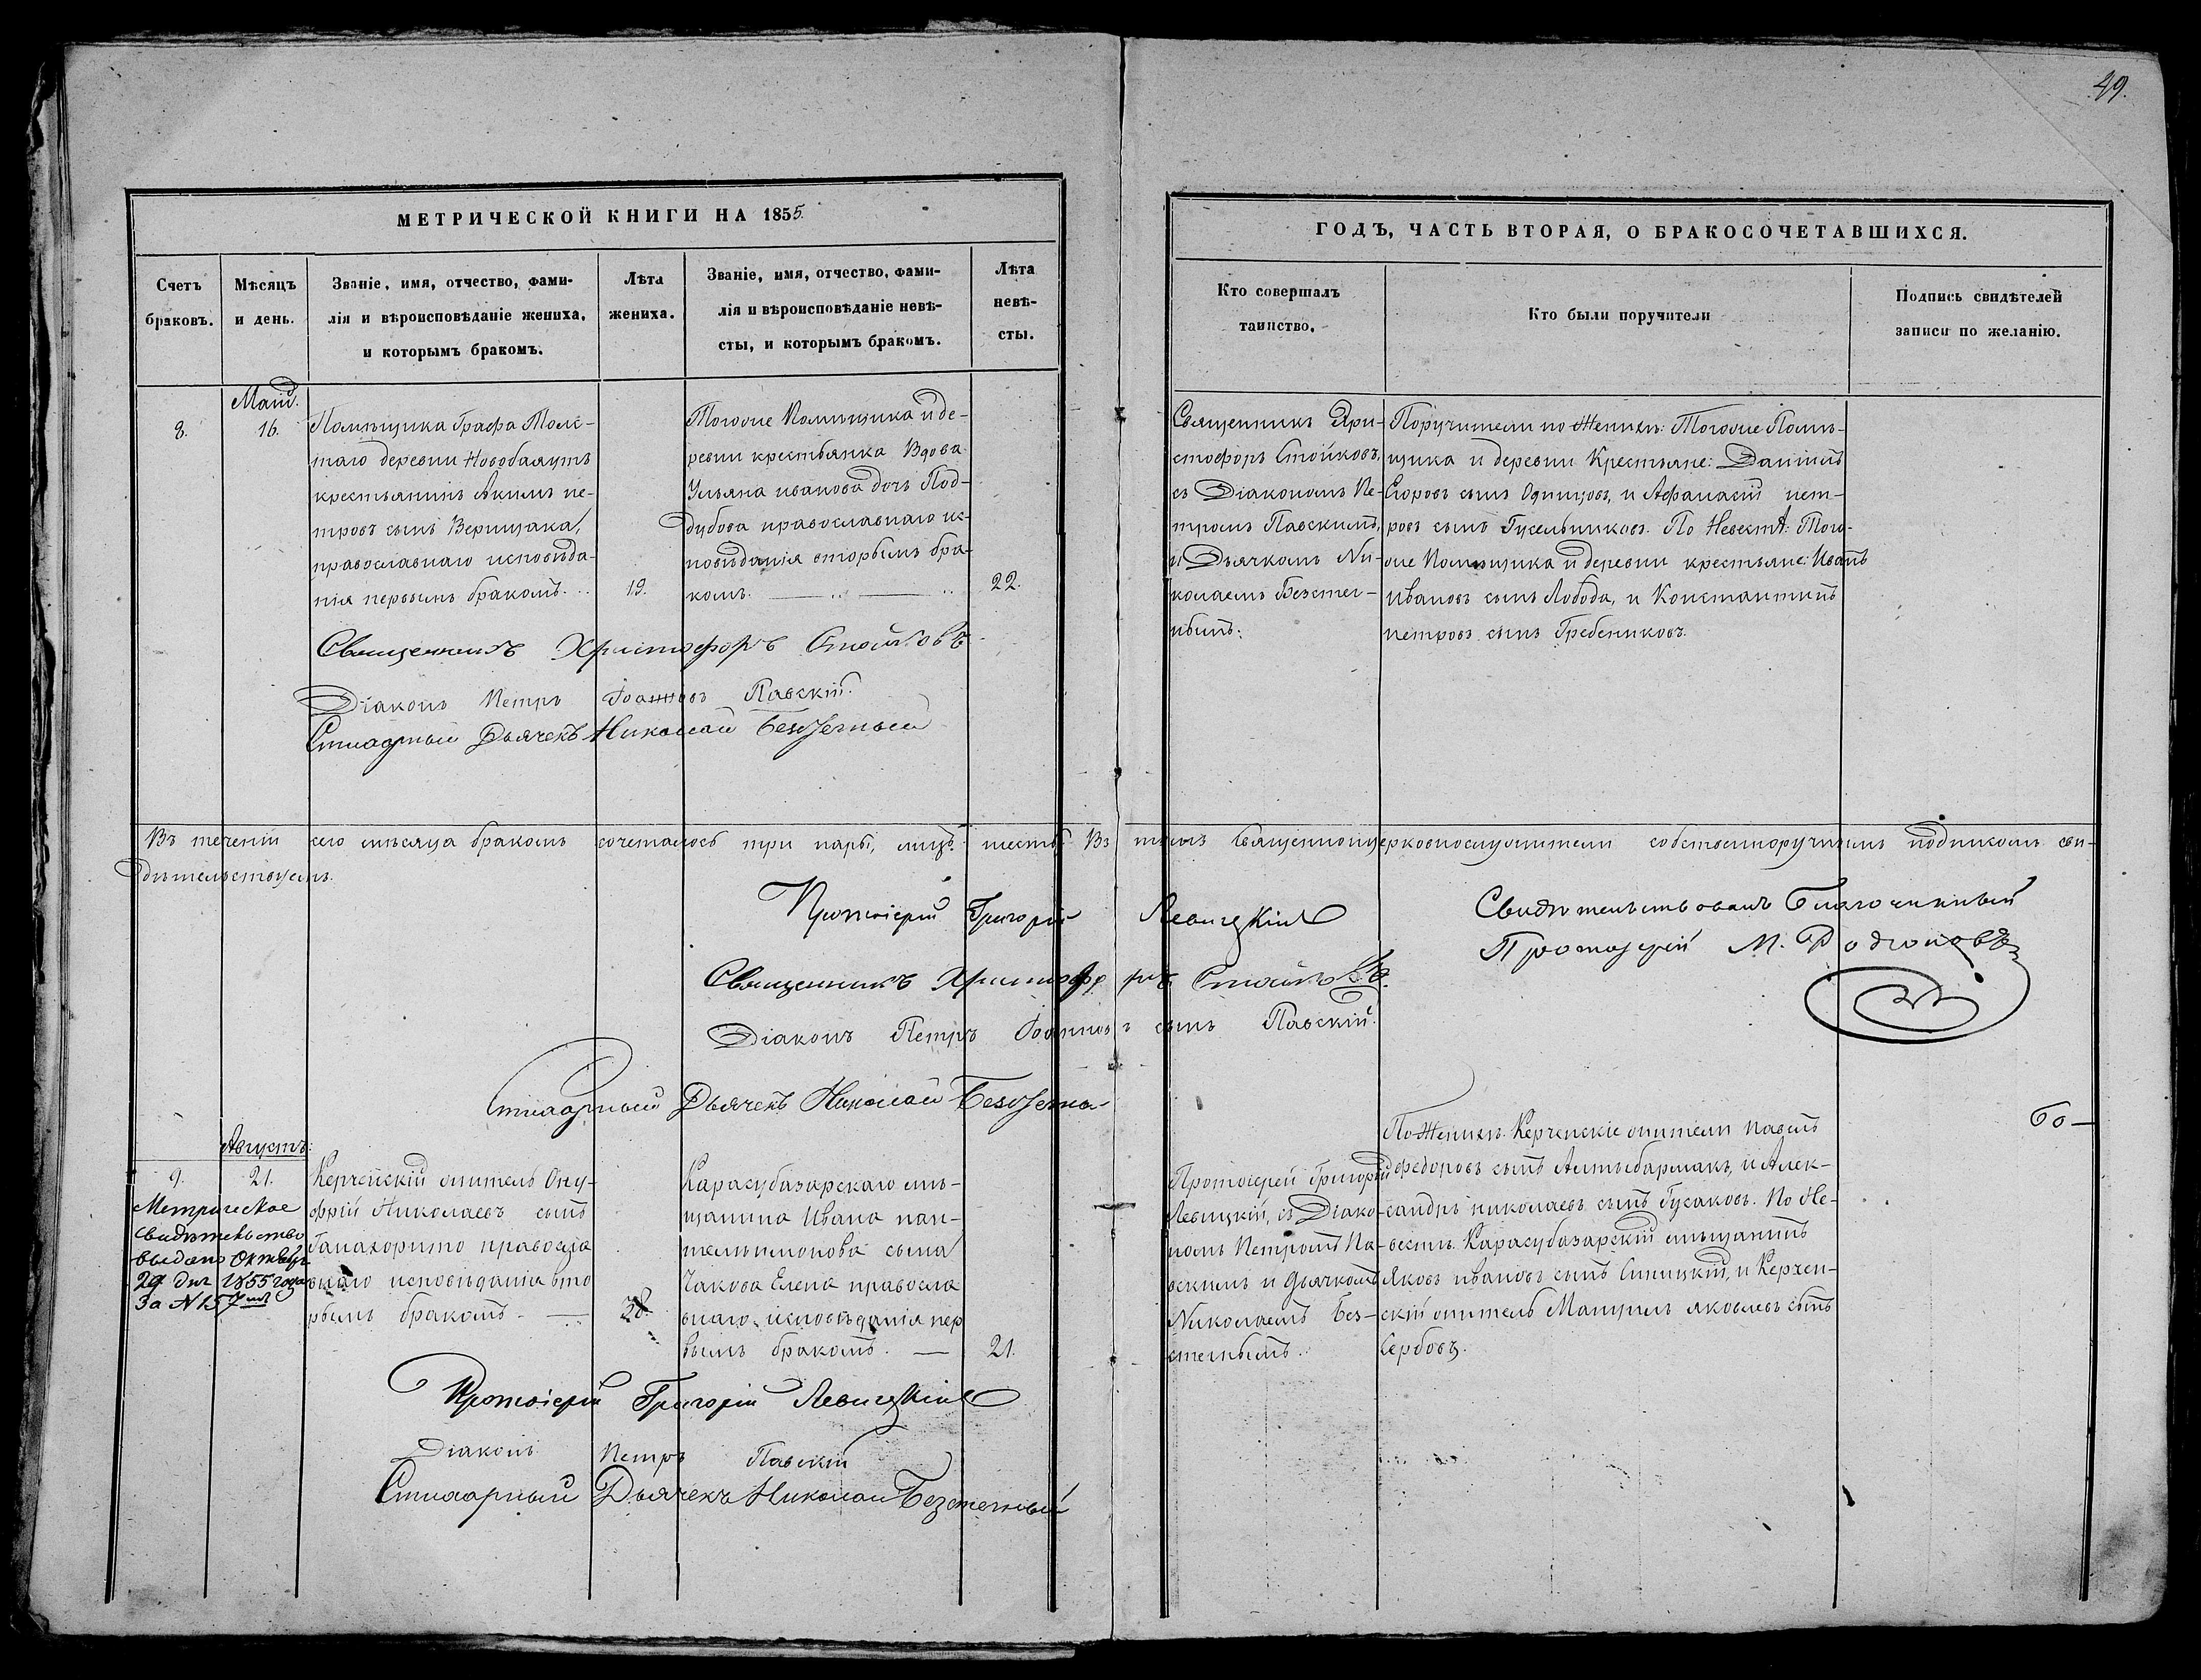 49.
МЕТРИЧЕСКОЙ КНИГИ НА 1855.
ГОДЪ, ЧАСТЬ ВТОРАЯ, О БРАКОСОЧЕТАВШИХСЯ.
Счетъ
браковъ.
Мѣсяцъ
и день.
Званіе, имя, отчество, фами-
лія и вѣроисповѣданіе жениха,
и которымъ бракомъ.
Лѣта
жениха.
Званіе, имя, отчество, фами-
лія и вѣроисповѣданіе невѣ-
сты, и которымъ бракомъ.
Лѣта
невѣ-
сты.
Кто совершалъ
таинство.
Кто были поручители
Подпись свидѣтелей
записи по желанію.
8.
16.
Помѣщика Графа Толс-
таго деревни Новобаяутъ
крестьянинъ Акимъ пе-
тровъ сынъ Верищака,
православнаго исповѣда-
нія первымъ бракомъ.
19.
Тогоже Помѣщика и де-
ревни крестьянка Вдова
Ульяна иванова дочь Под-
дубова православнаго ис-
повѣданія вторымъ бра-
комъ.
22.
Священникъ Хри-
стофоръ Стойковъ,
съ Діакономъ Пе-
тромъ Павскимъ,
и Дьячкомъ Ни-
колаемъ Безстег-
нымъ:
Поручители по Женихѣ: Тогоже Помѣ-
щика и деревни Крестьяне: Даниилъ
Егоровъ сынъ Одинцовъ, и Афанасій пет-
ровъ сынъ Гусельниковъ. По Невестѣ: Того-
же Помѣщика и деревни крестьяне: Иванъ
ивановъ сынъ Лобода, и Константинъ
петровъ сынъ Гребениковъ.
Священникъ Христофоръ Стойковъ
Діаконъ Петръ Іоанновъ Павскій.
Стихарный Дьячекъ Николай
Въ теченіи сего мѣсяца бракомъ сочеталось три пары, лицъ шесть. Въ чемъ священноцерковнослужители собственноручнымъ подпискомъ сви-
дѣтельствуемъ.
Протоіерей Григорій Левицкій
Священникъ Христофоръ Стойковъ.
Діаконъ Петръ Іоанновъ сынъ Павскій.
Стихарный Дьячекъ Николай
Свидѣтельствовалъ Благочинный
Протоіерей М. Родіоновъ
Августъ:
9.
21.
Метрическое
свидѣтельство
выдано Октября
29 дня 1855 года
за N 157мъ
Керченскій житель Ону-
фрій Николаевъ сынъ
православ
внаго исповѣданія вто
рымъ бракомъ.
38.
Карасубазарскаго мѣ-
щанина Ивана пан-
телеимонова сына
Чакова Елена правосла
внаго исповѣданія пер
вымъ бракомъ.
21.
Протоіерей Григорій
Левицкій, съ Діако-
номъ Петромъ Па-
вскимъ и дьячкомъ
Николаемъ Без-
стегнымъ.
По Женихѣ. Керченскіе жители Павелъ
федоровъ сынъ Алтыбармакъ, и Алек-
сандръ николаевъ сынъ Гусаковъ. По Не-
вестѣ. Карасубазарскій мѣщанинъ
Яковъ ивановъ сынъ Синицкій, и Керчен-
скій житель яковлевъ сынъ
Сербовъ.
Протоіерей Григорій Левицкій
Діаконъ Петръ Павскій
Стихарный Дьячекъ Николай Безстегный